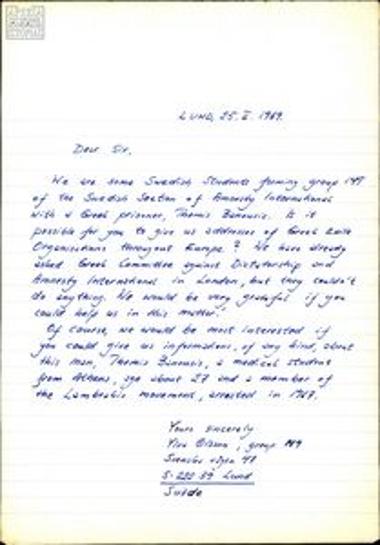 LUND, 25. II. 1969.
Dear Sir,
We are some Swedish Students forming group 149
of the Swedish Section of Amnesty International
with a Greek prisoner, Themis Banousis. Is it
possible for you to give us addresses of Greek Exile
Organisations throughout Europe? We have already
asked Greek Committee against Dictatorship and
Amnesty International in London, but they couldn't
do anything. We would be very grateful if you
could help us in this matter.
Of course, we would be most interested if
you could give us informations, of any kind, about
this man, Themis Banousis, a medical student
from Athens, age about 27 and a member of
the Lambrakis movement, arrested in 1967.
Yours sincerely
Olsson, group 149
47
S-222 39 Lund
Suède